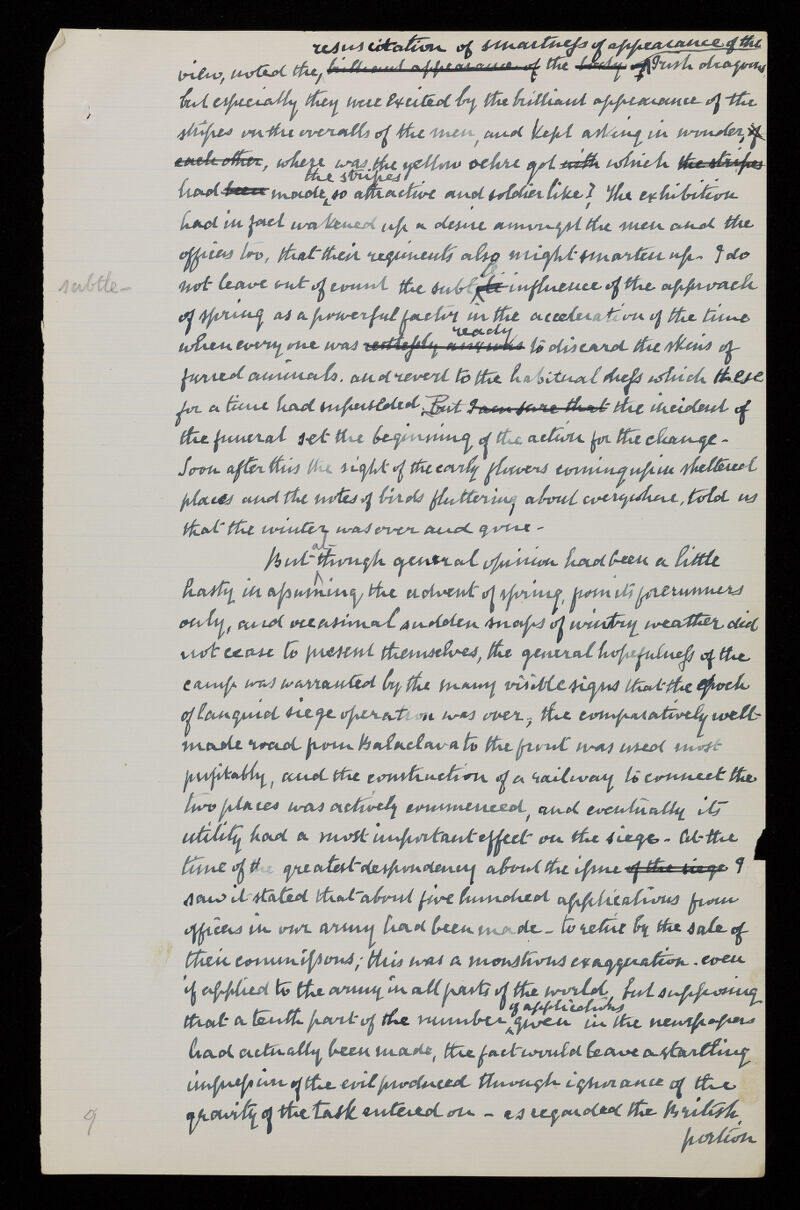 resuscitation of smartness of appearance of the
view, noted the, brilliant appearance of the body of Irish dragoons,
but especially they were excited by the brilliant appearance of the
stripes on the overalls of the men, and kept asking in wonder, of
each other, where was the yellow ochre got with which the stripes
the stripes
had been made, so attractive and soldier like? The exhibition
had in fact wakened up a desire amongst the men and the
officers too, that their regiments also might smarten up. I do
subtle -
not leave out of count the subtle influence of the approach
of spring as a powerful factor in the acceleration of the time
ready
when every one was restlessly anxious to discard the skins of
furred animals. and revert to the habitual dress which these
for a time had superseded. But I am sure that the incident of
the funeral set the beginning of the action for the change -
Soon after this the sight of the early flowers coming up in sheltered
places and the notes of birds fluttering about everywhere, told us
that the winter was over and gone -
al
But though general opinion had been a little
hasty in assuming, the advent of spring, from its forerunners
only, and occasional sudden snaps of wintry weather did
not cease to present themselves, the general hopefulness of the
camp was warranted by the many visible signs that the epoch
of languid siege operation was over; the comparatively well-
made road from Balaclava to the front was used most
profitably, and the construction of a railway to connect the
two places was actively commenced, and eventually its
utility had a most important effect on the siege - At the
time of the greatest despondency about the issue of the siege I
saw it stated that about five hundred applications from
officers in our army had been made - to retire by the sale of
their commissons; this was a monstrous exaggeration. even
if applied to the army in all parts of the world, but supposing
of applications
that a tenth part of the number given in the newspapers
had actually been made, the fact would leave a startling
impression of the evil produced through ignorance of the
gravity of the task entered on - as regarded the British
portion
9